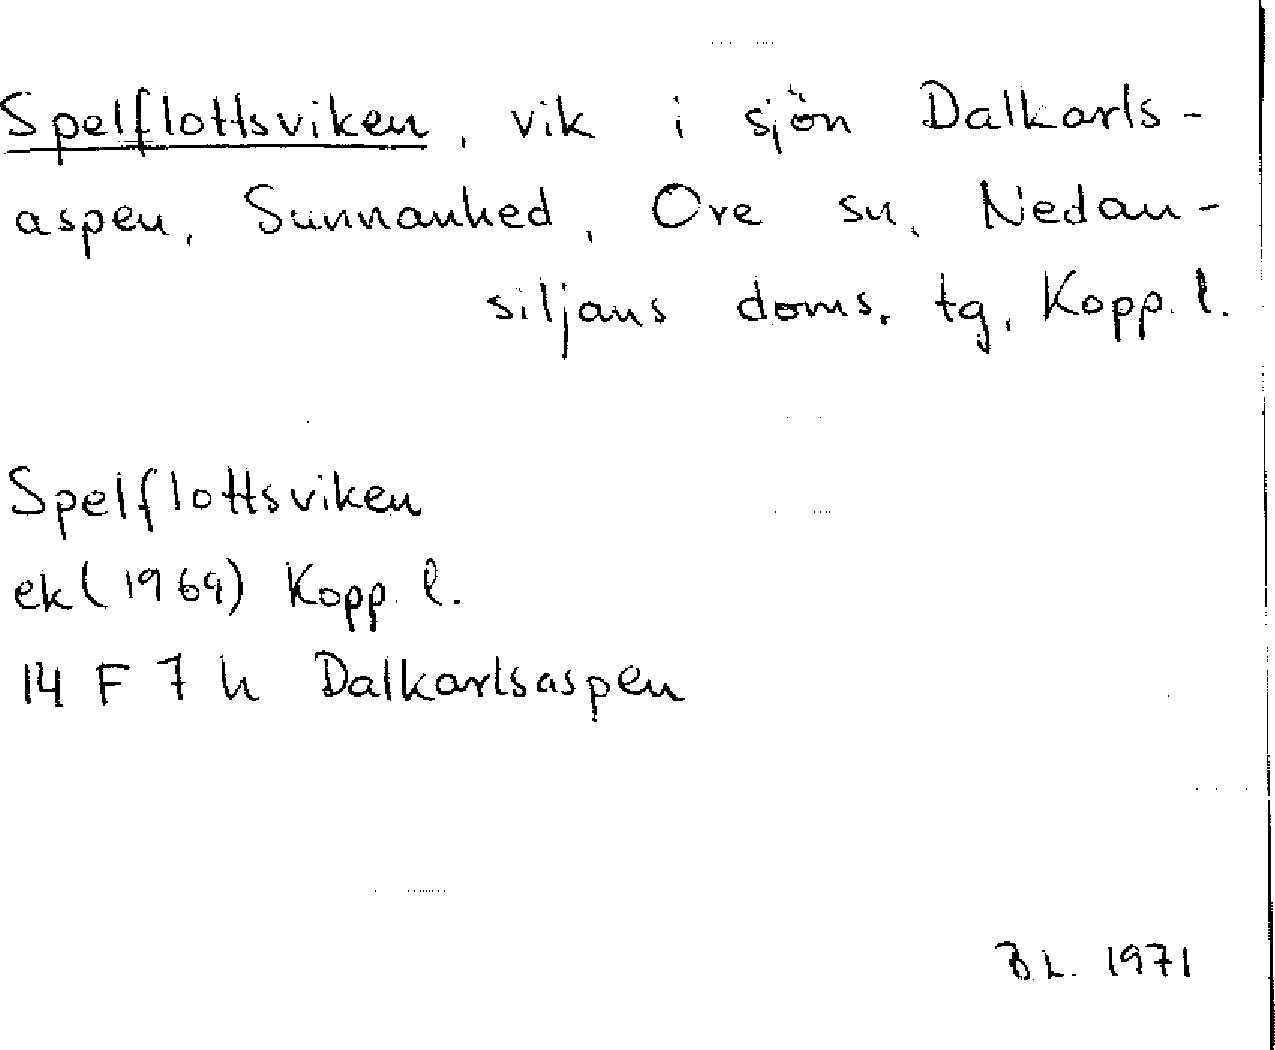 Spelflottsviken, vik i sjön Dalkarls-
aspen, Sunnanhed, Ore sn, Nedan-
siljans doms. tg, Kopp. l.
Spelflottsviken
ek (1969) Kopp. l.
14 F 7 h Dalkarlsaspen
B L. 1971